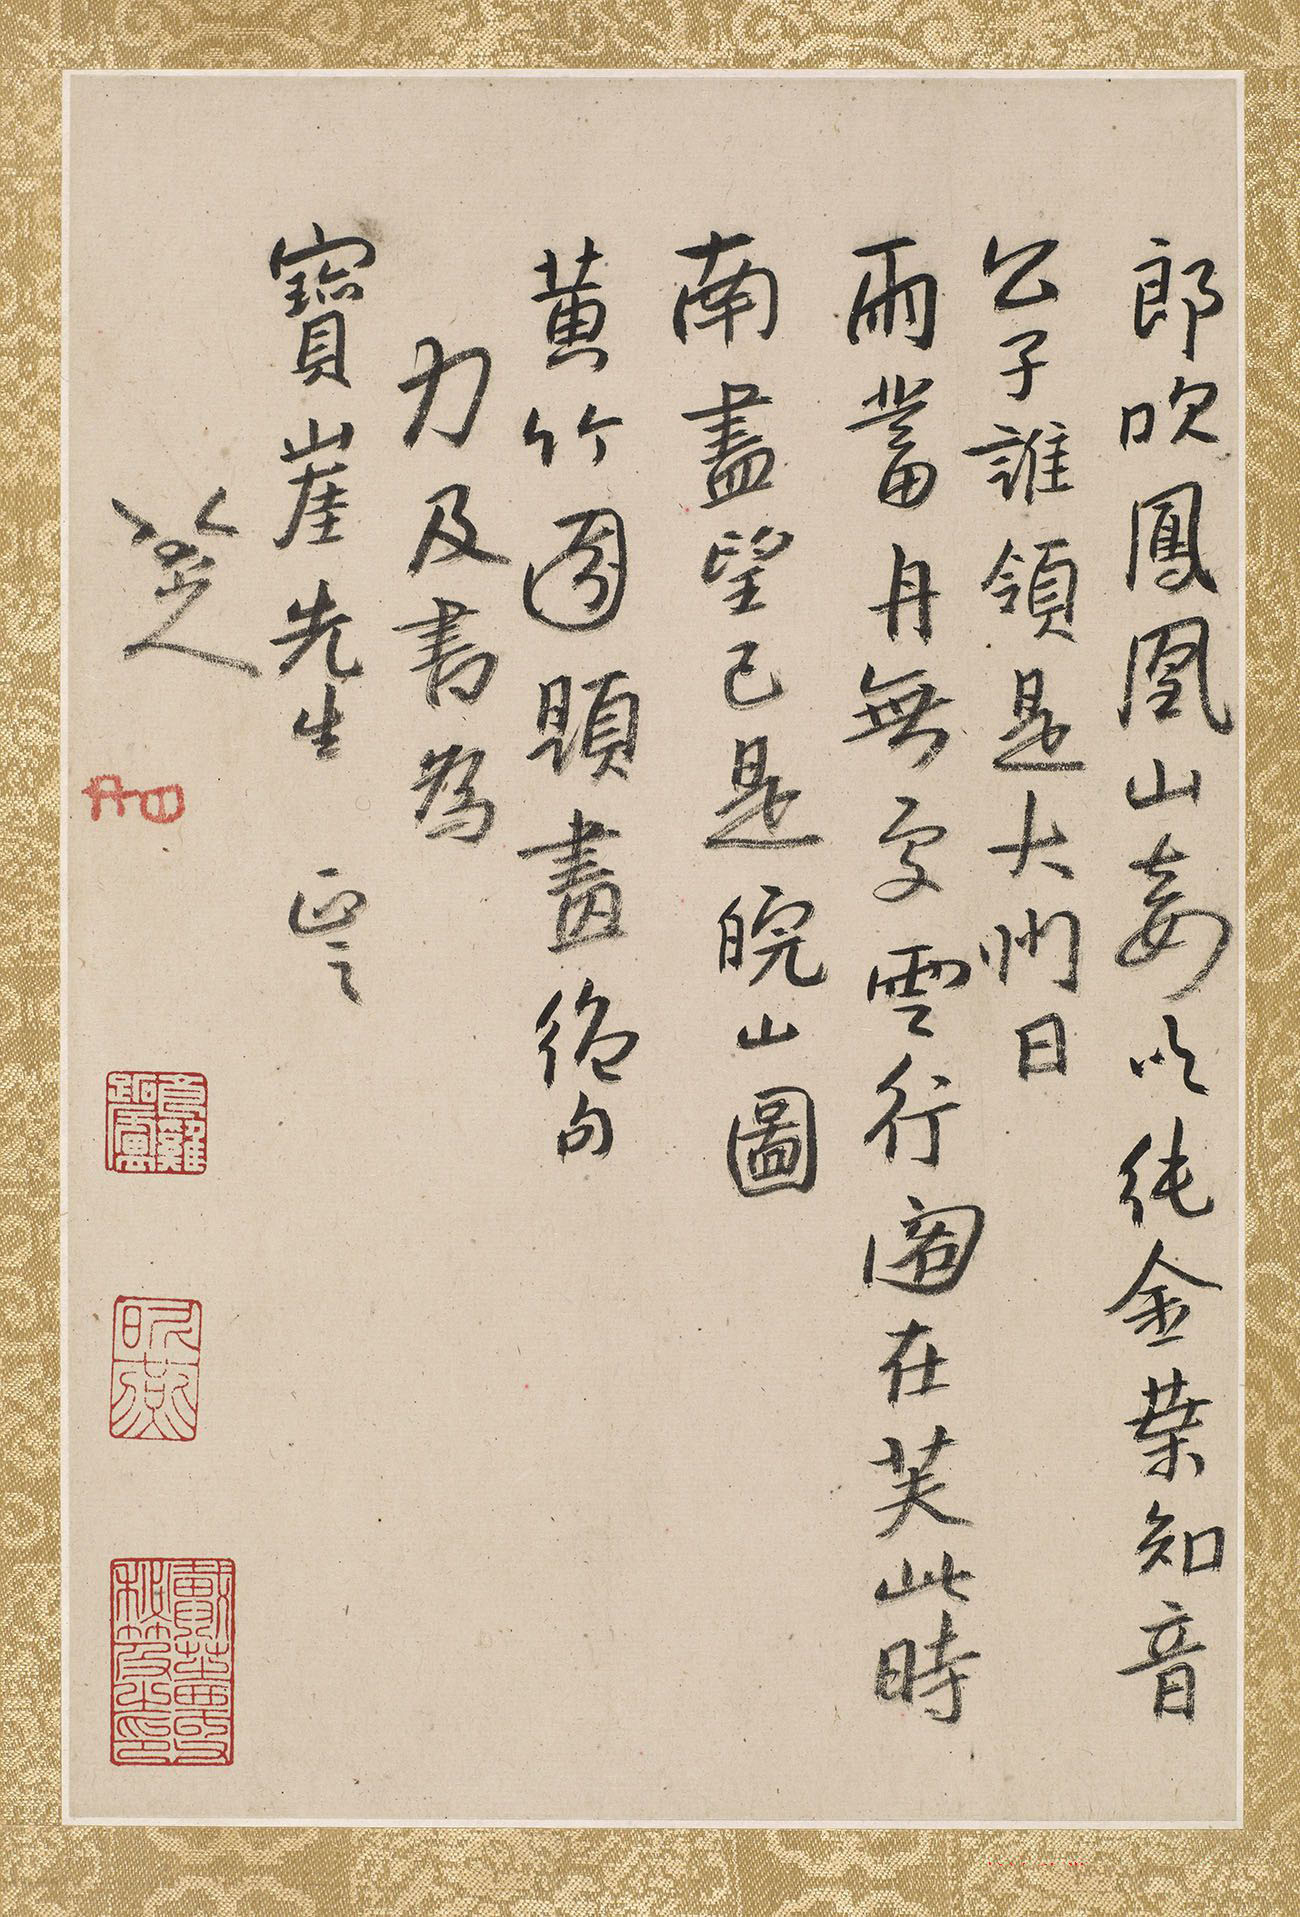 郎吹鳳凰山妾以純金葉知音
公子誰領是大州日
雨蓄丹無字雲行在芙此時
南盡望已是皖山圖
黃竹園題畫絕句
力及書為
寶崖先生 正之
八大山人